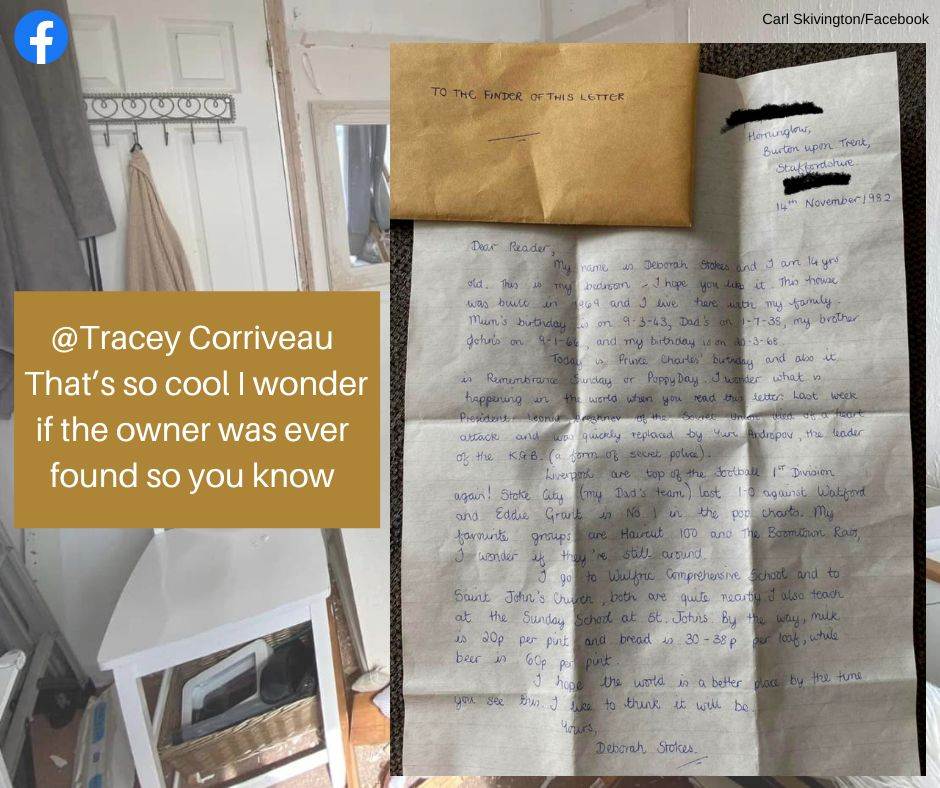 Carl Skivington/Facebook
TO THE FINDER OF THIS LETTER
Horninglow,
Burton upon Trent,
Staffordshire.
14th November 1982
Dear Reader,
My name is Deborah Stokes and I am 14 yrs
old. This is my bedroom - I hope you like it. This house
was built in 1969 and I live here with my family.
Mum's birthday is on 9-3-43, Dad's on 1-7-38, my brother
John's on 9-1-66, and my birthday is on 20-3-68.
Today is Prince Charles' birthday and also it
is Remembrance Sunday or Poppy Day. I wonder what is
happening in the world when you read this letter. Last week
President Leonid Brezhnev of the Soviet Union died of a heart
attack and was quickly replaced by Yuri Andropov, the leader
of the K.G.B. (a form of secret police).
Liverpool are top of the football 1st Division
again! Stoke City (my Dad's team) lost 1-0 against Watford
and Eddie Grant is No 1 in the pop charts. My
favourite groups are Haircut 100 and The Boomtown Rats,
I wonder if they're still around.
I go to Wulfric Comprehensive School and to
Saint John's Church, both are quite nearby I also teach
at the Sunday School at St. Johns. By the way, milk
is 20p per pint and bread is 30-38p per loaf, while
beer is 60p per pint.
I hope the world is a better place by the time
you see this. I like to think it will be.
Yours,
Deborah Stokes.
@Tracey Corriveau
That's so cool I wonder
if the owner was ever
found so you know